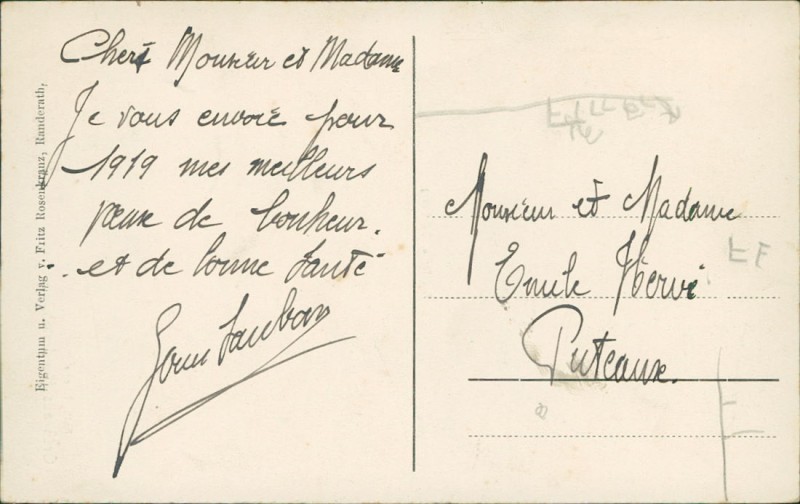 Chers Monsieur et Madame
Je vous envoie pour
1919 mes meilleurs
vœux de bonheur.
et de bonne santé
Monsieur et Madame
Emile Hervé
Puteaux.
Eigentum u. Verlag v. Fritz Rosenkranz, Randerath,